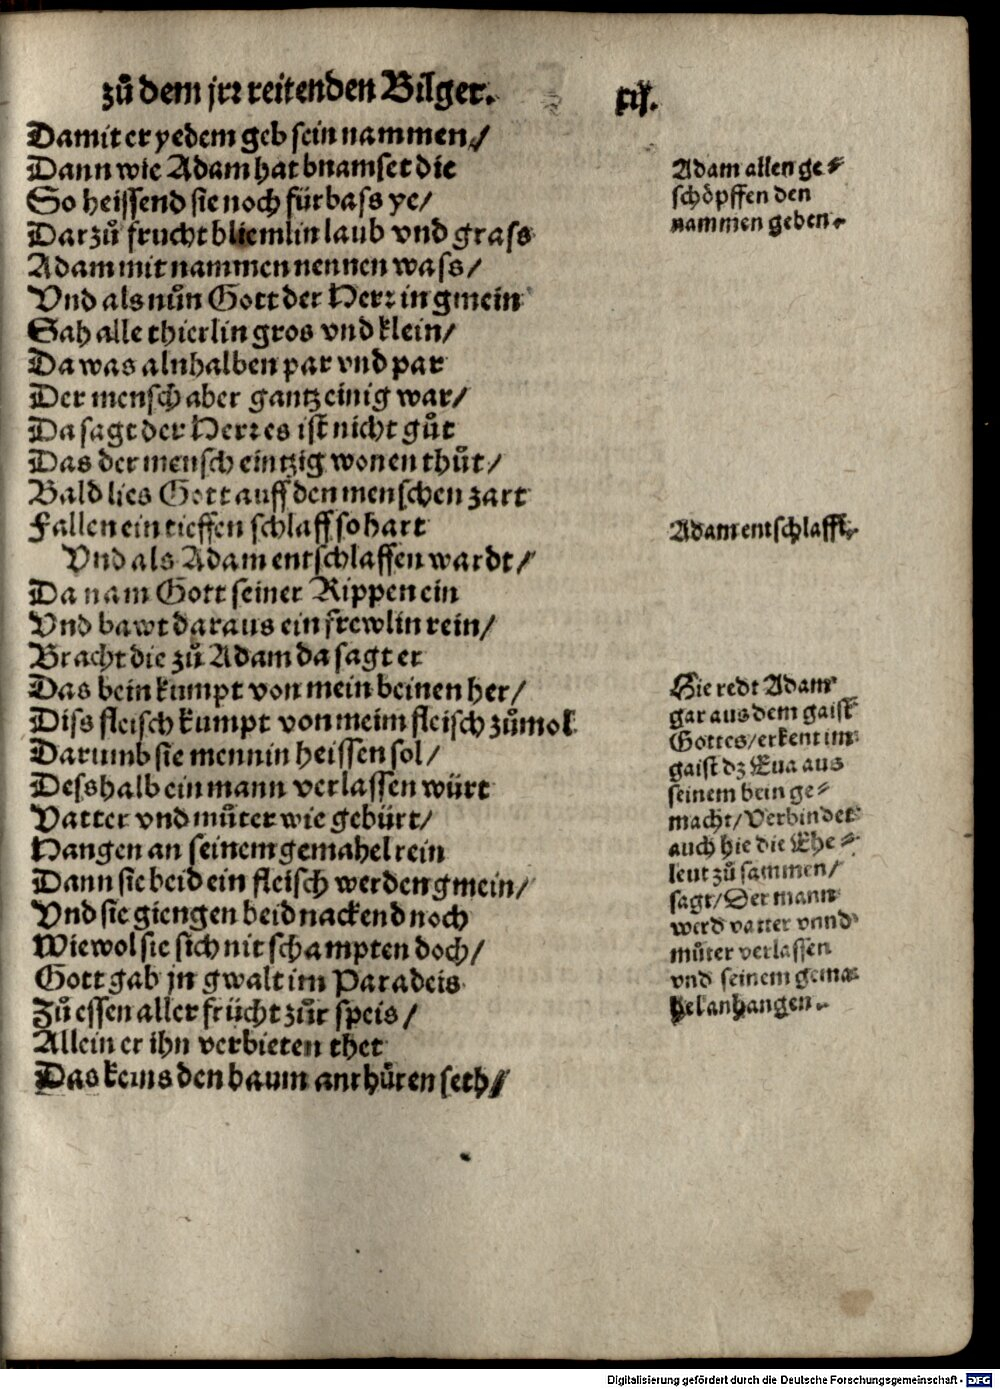 zů dem jrr reitenden Bilger.
xij.
Damit er yedem geb sein nammen/
Dann wie Adam hat bnamset die
So heissend sie noch fürbass ye/
Darzů frucht bliemlin laub vnd grass
Adam mit nammen nennen wass/
Vnd als nůn Gott der Herr in gmein
Sah alle thierlin gros vnd klein/
Da was alnhalben par vnd par
Der mensch aber gantz einig war/
Da sagt der Herr es ist nicht gůt
Das der mensch eintzig wonen thůt/
Bald lies Gott auff den menschen zart
Fallen ein tieffen schlaff so hart
Vnd als Adam entschlaffen wardt/
Da nam Gott seiner Rippen ein
Vnd bawt daraus ein frewlin rein/
Bracht die zů Adam da sagt er
Das bein kumpt von mein beinen her/
Diss fleisch kumpt von meim fleisch zůmol
Darumb sie mennin heissen sol/
Desshalb ein mann verlassen würt
Vatter vnd můter wie gebürt/
Hangen an seinem gemahel rein
Dann sie beid ein fleisch werden gmein/
Vnd sie giengen beid nackend noch
Wiewol sie sich nit schampten doch/
Gott gab jn gwalt im Paradeis
Zů essen aller frücht zůr speis/
Allein er ihn verbieten thet
Das keins den baum anrhůren seth/
Adam allen ge⸗
schöpffen den
nammen geben.
Adam entschlafft.
Hie redt Adam
gar aus dem gaist
Gottes/erkent im
gaist dz Eua aus
seinem bein ge⸗
macht/Verbindet
auch hie die Ehe⸗
leut zů sammen/
sagt/Der mann
werd vatter vnnd
můter verlassen
vnd seinem gema⸗
hel anhangen.
Digitalisierung gefördert durch die Deutsche Forschungsgemeinschaft - DFG